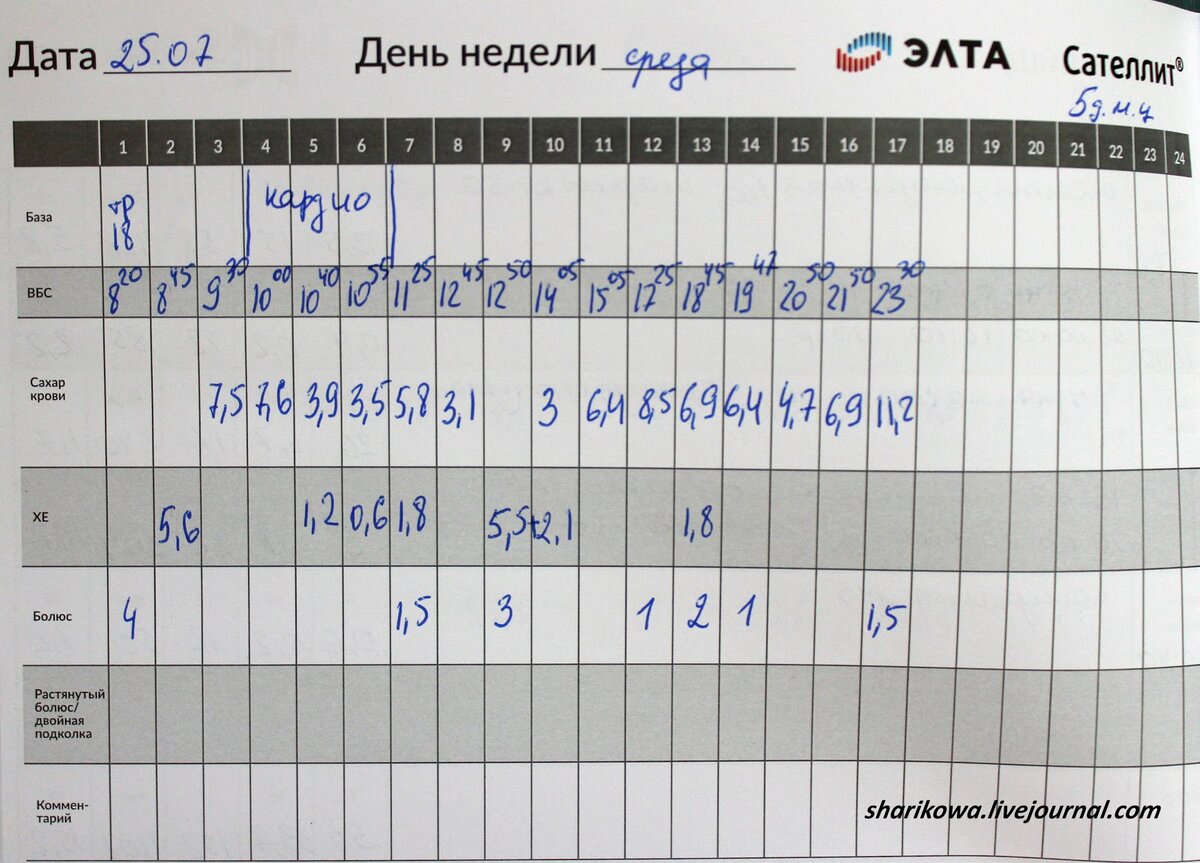 Дата 25.07 День недели среда ЭЛТА Сателлит®
5 д.м.ц
1 2 3 4 5 6 7 8 9 10 11 12 13 14 15 16 17 18 19 20 21 22 23 24
База тр 18 кардио
ВБС 8 20 8 45 9 30 10 00 10 40 10 55 11 25 12 45 12 50 14 05 15 05 17 25 18 45 19 47 20 50 21 50 23 30
Сахар крови 7,5 7,6 3,9 3,5 5,8 3,1 3 6,4 8,5 6,9 6,4 4,7 6,9 11,2
ХЕ 5,6 1,2 0,6 1,8 5,5+2,1 1,8
Болюс 4 1,5 3 1 2 1 1,5
Растянутый
болюс/
двойная
подколка
Коммен-
тарий
sharikowa.livejournal.com